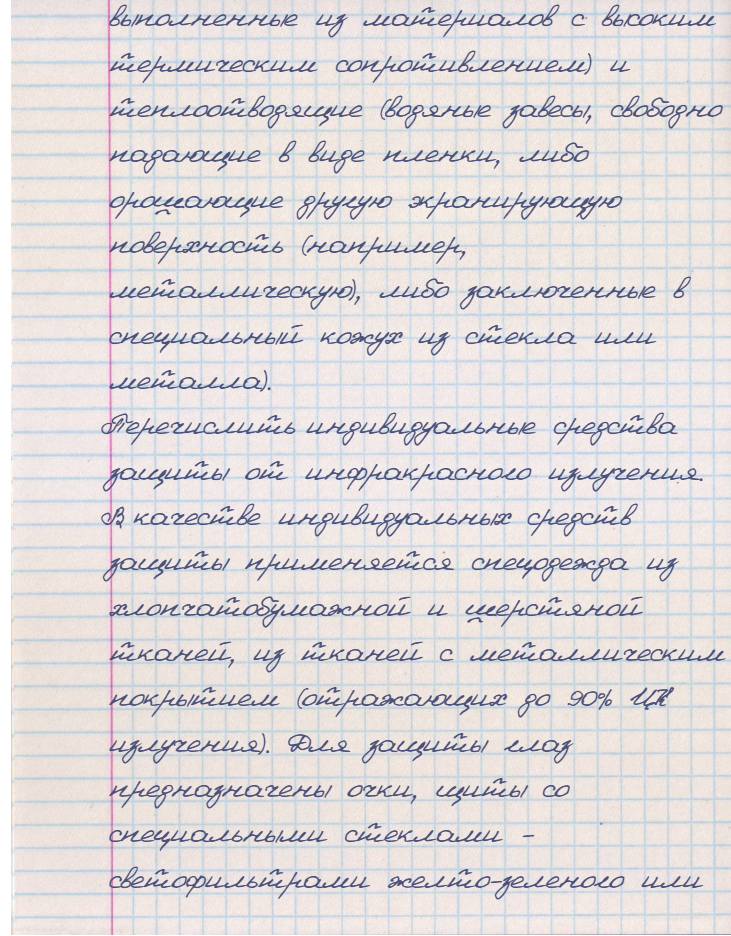 выполненные из материалов с высоким
термическим сопротивлением) и
теплоотводящие (водяные завесы, свободно
падающие в виде пленки, либо
орошающие другую экранирующую
поверхность (например,
металлическую), либо заключенные в
специальный кожух из стекла или
металла).
Перечислить индивидуальные средства
защиты от инфракрасного излучения.
В качестве индивидуальных средств
защиты применяется спецодежда из
хлопчатобумажной и шерстяной
тканей, из тканей с металлическим
покрытием (отражающих до 90% ИК
излучения). Для защиты глаз
предназначены очки, щиты со
специальными стеклами –
светофильтрами желто-зеленого или